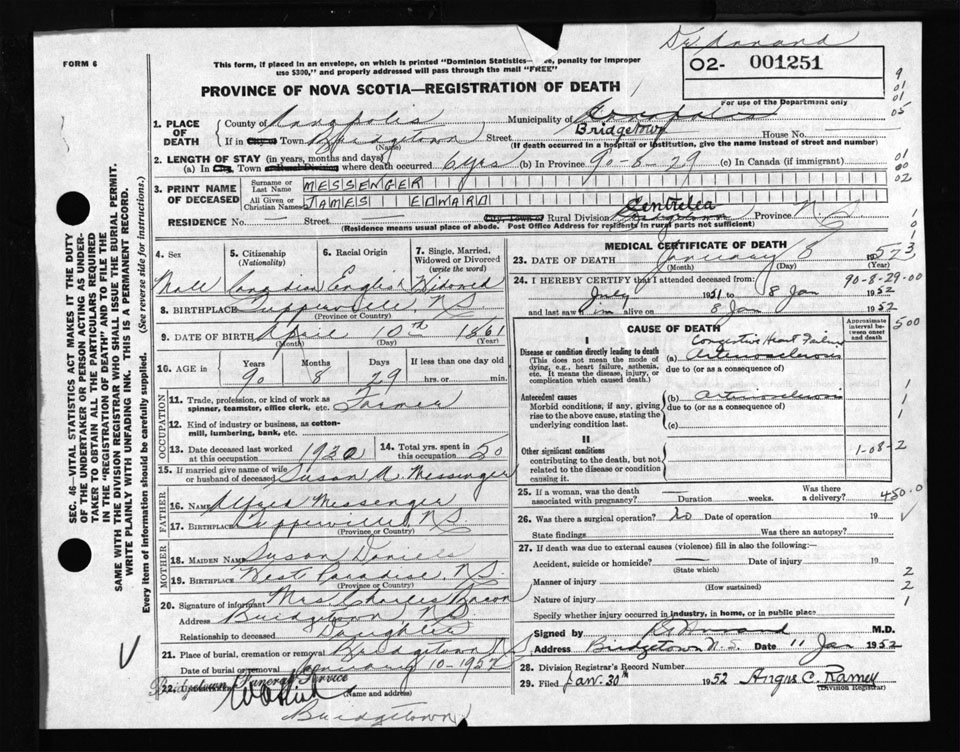 FORM 6
This form, if placed in an envelope, on which is printed "Dominion Statistics— e, penalty for improper
use $300," and properly addressed will pass through the mail "FREE"
02- 001251
For use of the Department only
PROVINCE OF NOVA SCOTIA—REGISTRATION OF DEATH
1. PLACE OF DEATH
County of Annapolis Municipality of Annapolis
Bridgetown
If in City or Town Bridgetown Street House No.
(Name) (If death occurred in a hospital or institution, give the name instead of street and number)
2. LENGTH OF STAY (in years, months and days)
(a) In City, Town or Rural Division where death occurred 6 yrs (b) In Province 90-8-29 (c) In Canada (if immigrant)
3. PRINT NAME OF DECEASED
Surname or Last Name MESSENGER
All Given or Christian Names JAMES EDWARD
Centrelea
RESIDENCE No. Street City, Town or Rural Division Bridgetown Province N.S
(Residence means usual place of abode. Post Office Address for residents in rural parts not sufficient)
4. Sex 5. Citizenship (Nationality) 6. Racial Origin 7. Single, Married, Widowed or Divorced (write the word)
Male Canadian English Widowed
8. BIRTHPLACE Tupperville, N.S.
(Province or Country)
9. DATE OF BIRTH April 10th 1861
(Month) (Day) (Year)
10. AGE in Years Months Days If less than one day old
90 8 29 hrs. or min.
OCCUPATION
11. Trade, profession, or kind of work as spinner, teamster, office clerk, etc. Farmer
12. Kind of industry or business, as cotton-mill, lumbering, bank, etc.
13. Date deceased last worked at this occupation 1930 14. Total yrs. spent in this occupation 50
15. If married give name of wife or husband of deceased Susan A. Messenger
FATHER
16. NAME Alfred Messenger
17. BIRTHPLACE Tupperville, N.S
(Province or Country)
MOTHER
18. MAIDEN NAME Susan Daniels
19. BIRTHPLACE West Paradise, N.S.
(Province or Country)
20. Signature of informant Mrs Charles Bacon
Address Bridgetown, N.S.
Relationship to deceased Daughter
21. Place of burial, cremation or removal Bridgetown N.S
Date of burial or removal January 10-1952
22. Bridgetown Funeral Service
(Name and address)
Bridgetown
MEDICAL CERTIFICATE OF DEATH
23. DATE OF DEATH January 8 1952
(Month) (Day) (Year)
24. I HEREBY CERTIFY that I attended deceased from: 90-8-29-00
July 1951 to 8 Jan 1952
and last saw him alive on 8 Jan 1952
CAUSE OF DEATH
Approximate interval between onset and death
I
Disease or condition directly leading to death
(This does not mean the mode of dying, e.g., heart failure, asthenia, etc. It means the disease, injury, or complication which caused death.)
Congestive Heart Failure
(a) Arteriosclerosis
due to (or as a consequence of)
Antecedent causes
Morbid conditions, if any, giving rise to the above cause, stating the underlying condition last.
(b) Arteriosclerosis
due to (or as a consequence of)
(c)
II
Other significant conditions
contributing to the death, but not related to the disease or condition causing it.
1-08-2
25. If a woman, was the death associated with pregnancy? Duration weeks. Was there a delivery?
450.0
26. Was there a surgical operation? no Date of operation 19
State findings Was there an autopsy?
27. If death was due to external causes (violence) fill in also the following:—
Accident, suicide or homicide? Date of injury 19
(State which)
Manner of injury
(How sustained)
Nature of injury
Specify whether injury occurred in industry, in home, or in public place
Signed by M.D.
Address Bridgetown N.S. Date 11 Jan 1952
28. Division Registrar's Record Number
29. Filed Jan. 30th 1952 Angus C. Ramey
(Division Registrar)
SEC. 46—VITAL STATISTICS ACT MAKES IT THE DUTY
OF THE UNDERTAKER OR PERSON ACTING AS UNDER-
TAKER TO OBTAIN ALL THE PARTICULARS REQUIRED
IN THE "REGISTRATION OF DEATH" AND TO FILE THE
SAME WITH THE DIVISION REGISTRAR WHO SHALL ISSUE THE BURIAL PERMIT.
WRITE PLAINLY WITH UNFADING INK. THIS IS A PERMANENT RECORD.
Every item of information should be carefully supplied. (See reverse side for instructions.)